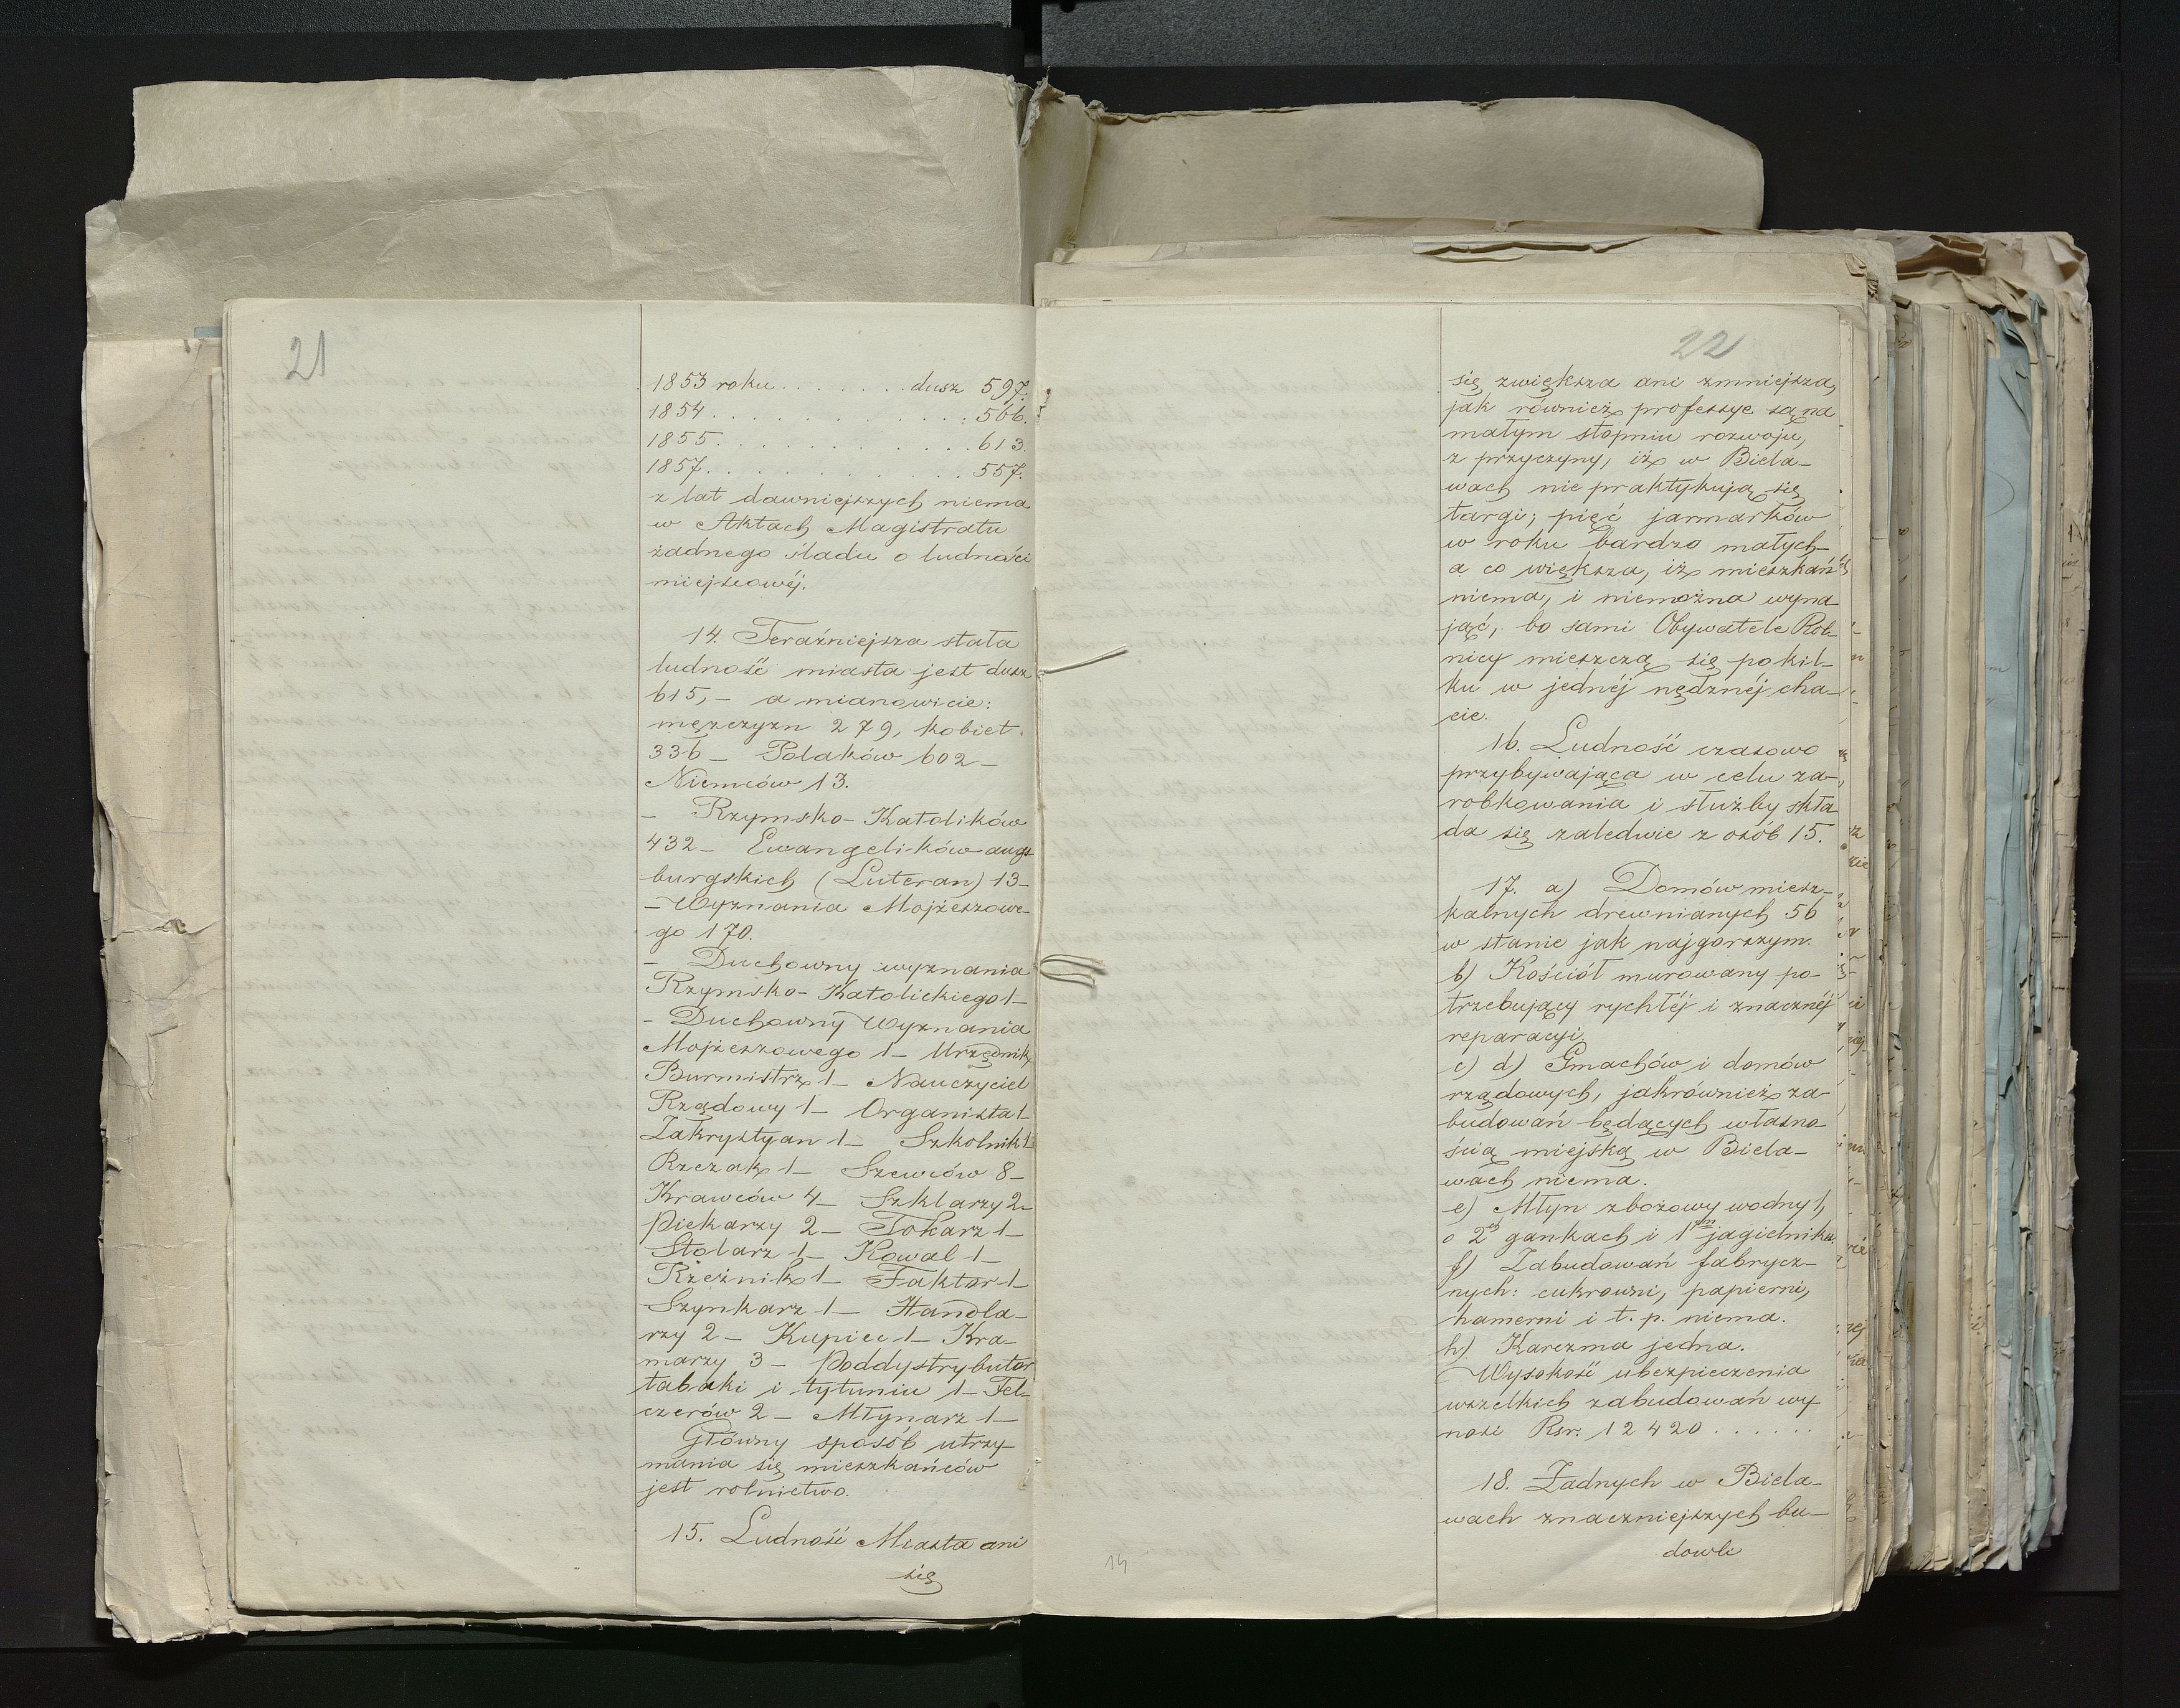 21
1853 roku . . . . . . . dusz 597.
1854 . . . . . . . . . . . . : 566.
1855 . . . . . . . . . . . . . 613.
1857 . . . . . . . . . . . . 557.
z lat dawniejszych niema
w Aktach Magistratu
żadnego śladu o ludności
miejscowéj.
14. Teraźniejsza stała
ludność miasta jest dusz
615, – a mianowicie:
męzczyzn 279, kobiet
336 – Polaków 602 –
Niemców 13.
– Rzymsko-Katolików
432 – Ewangelików augs
burgskich (Luteran) 13 –
– Wyznania Mojżeszowe-
go 170.
– Duchowny wyznania
Rzymsko-Katolickiego 1 –
– Duchowny Wyznania
Mojżeszowego 1 – Urzędnik
Burmistrz 1 – Nauczyciel
Rządowy 1 – Organista 1 –
Zakrystyan 1 – Szkolnik 1
Rzezak 1 – Szewców 8 –
Krawców 4 – Szklarzy 2 –
Piekarzy 2 – Tokarz 1 –
Stolarz 1 – Kowal 1 –
Rzeźnik 1 – Faktor 1 –
Szynkarz 1 – Handla-
rzy 2 – Kupiec 1 – Kra-
marzy 3 – Poddystrybutor
tabaki i tytuniu 1 – Fel-
czerów 2 – Młynarz 1 –
Główny sposób utrzy-
mania się mieszkańców
jest rolnictwo.
15. Ludność Miasta ani
się
22
się zwiększa ani zmniejsza,
jak również professye są na
małym stopniu rozwoju,
z przyczyny, iż w Biela-
wach nie praktykują się
targi; pięć jarmarków
w roku bardzo małych –
a co większa, iż mieszkań
niema, i niemożna wyna
jąć, bo sami Obywatele Rol-
nicy mieszczą się po kil-
ku w jednéj nędznéj cha-
cie.
16. Ludność czasowo
przybywająca w celu za-
robkowania i służby skła
da się zaledwie z osób 15.
17. a) Domów miesz-
kalnych drewnianych 56
w stanie jak najgorszym.
b) Kościół murowany po-
trzebujący rychłéj i znacznéj
reparacyi.
c) d) Gmachów i domów
rządowych, jak również za-
budowań będących własno
ścią miejską w Biela-
wach niema.
e) Młyn zbożowy wodny 1,
o 2ch gankach i 1ym jagielniku
f) Zabudowań fabrycz-
nych: cukrowni, papierni,
hamerni i t. p. niema.
h) Karczma jedna.
Wysokość ubezpieczenia
wszelkich zabudowań wy
nosi Rsr. 12420 . . . . . .
18. Żadnych w Biela-
wach znaczniejszych bu-
dowli
14